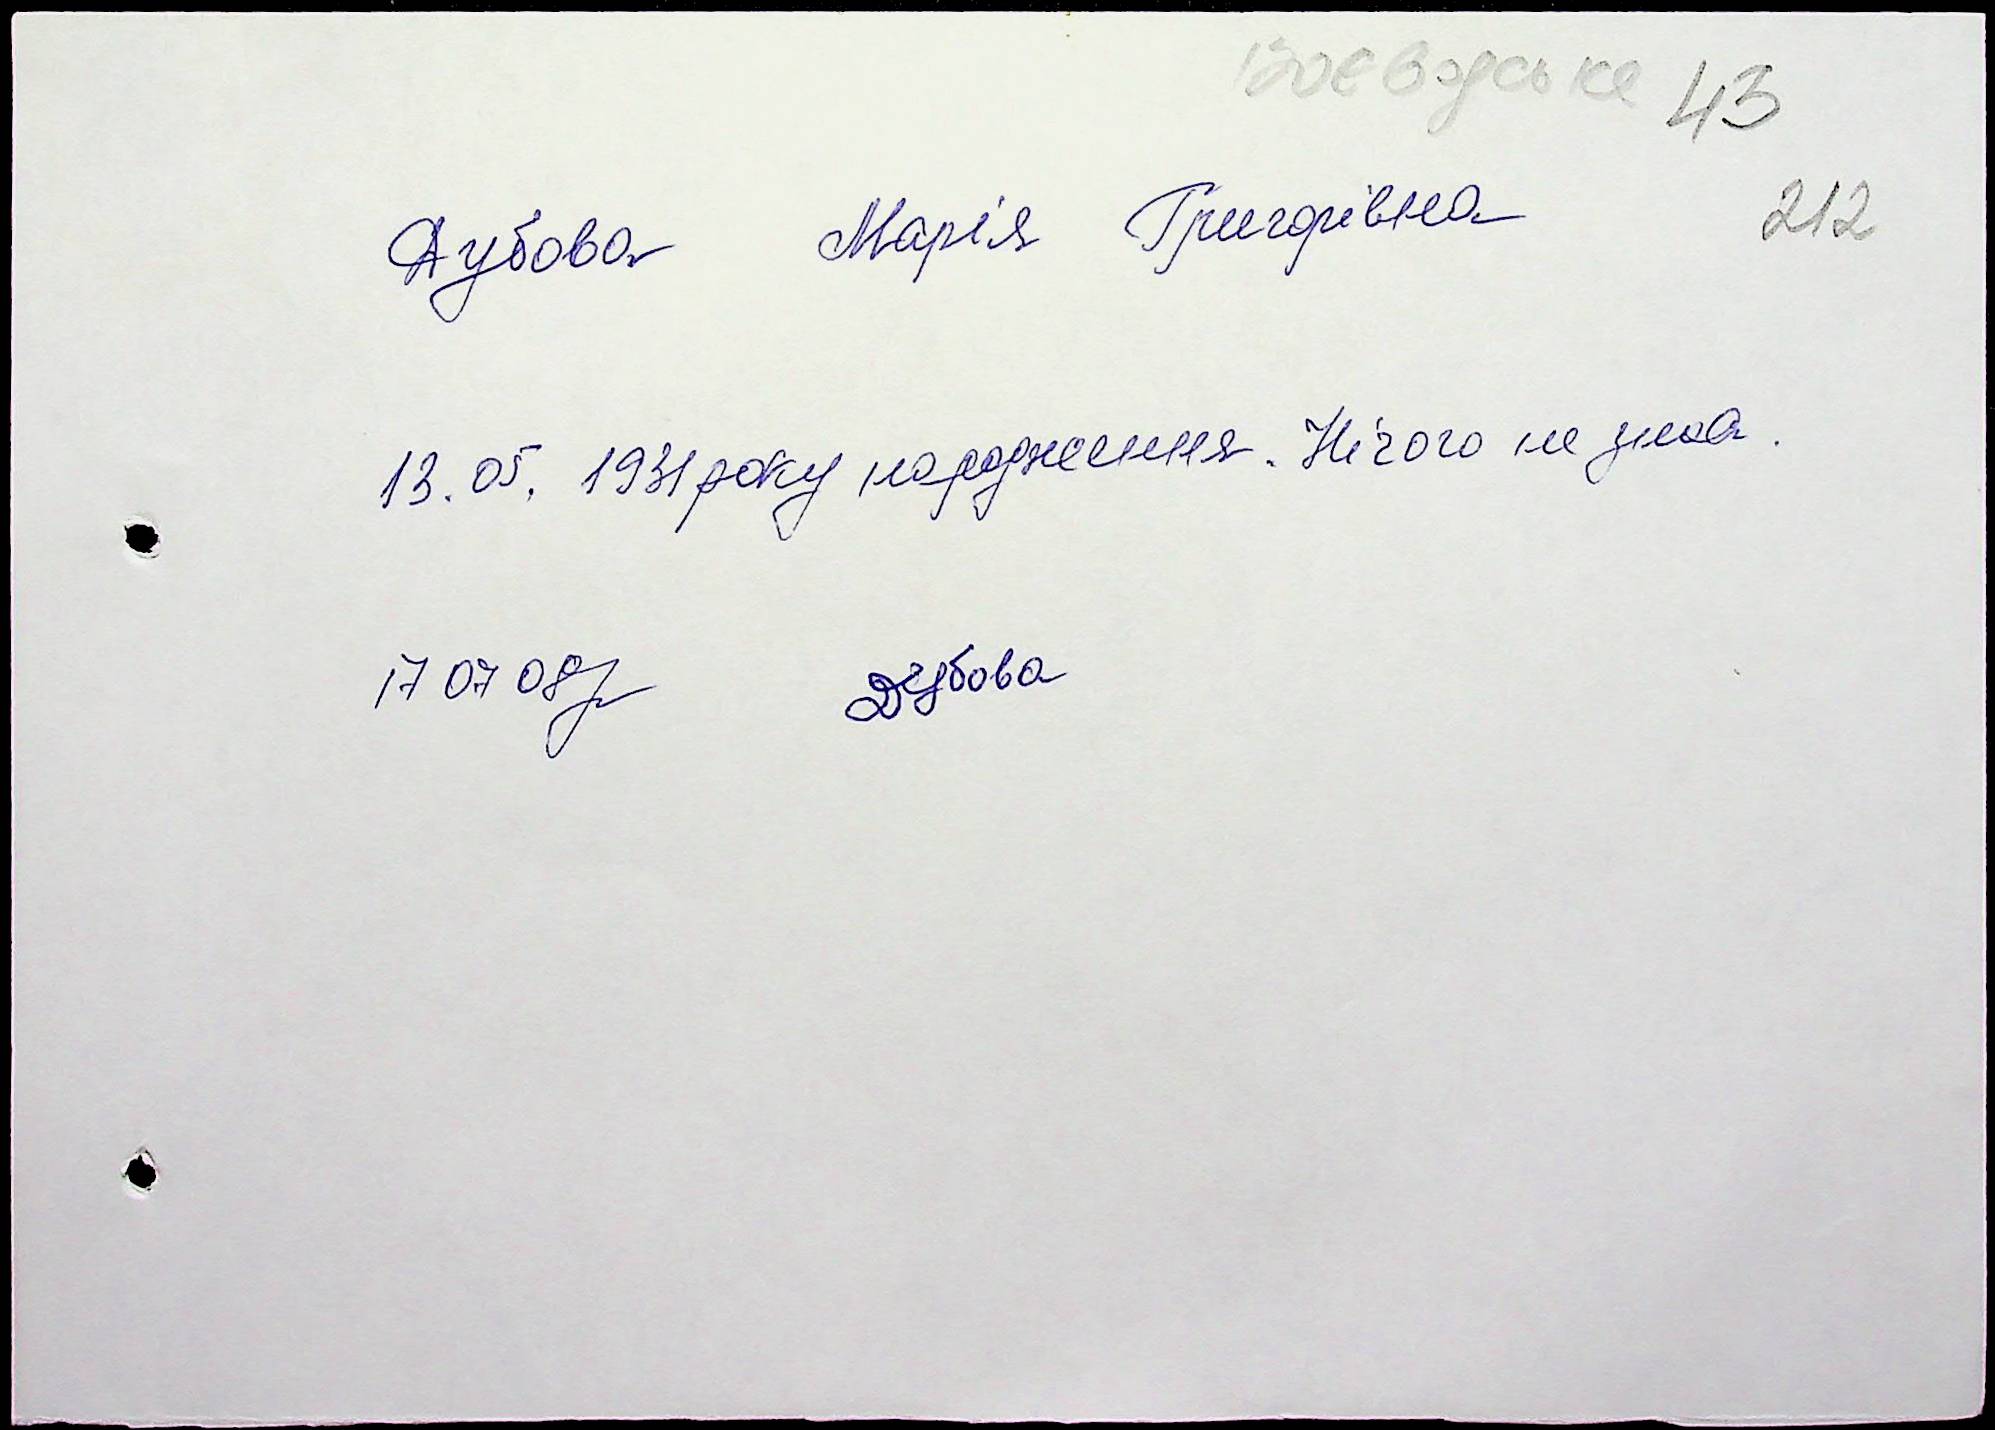 Воєводське 43
212
Дубова Марія Григорівна
13.05.1931 року народження. Нічого не зна.
17 07 08р Дубова